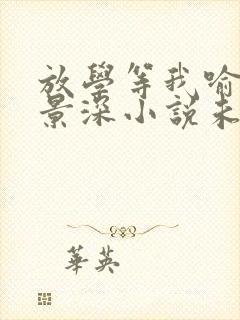 放學等我喻
景深小說未
華英